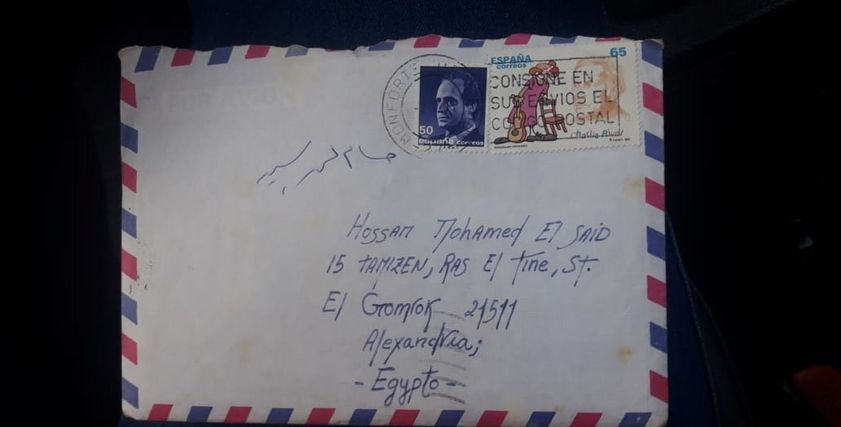 MONFORTE
50
España correos
65
ESPAÑA
correos
CONSIGNE EN
SUS ENVIOS EL
CODIGO POSTAL
حسام محمد السيد
Hossam Mohamed El SAID
15 TAMIZEN, RAS El Tine, St.
El Gomrok 21511
Alexandria;
- Egypto -